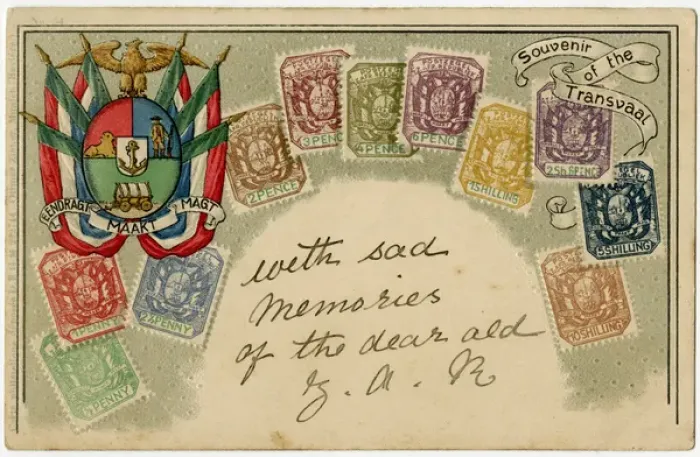 Souvenir
of the
Transvaal
EENDRAGT
MAAKT
MAGT
3 PENCE
4 PENCE
6 PENCE
2 PENCE
1 SHILLING
2S.6 PENCE
5 SHILLING
10 SHILLING
1 PENNY
2½ PENNY
½ PENNY
with sad
Memories
of the dear old
Z. A. R